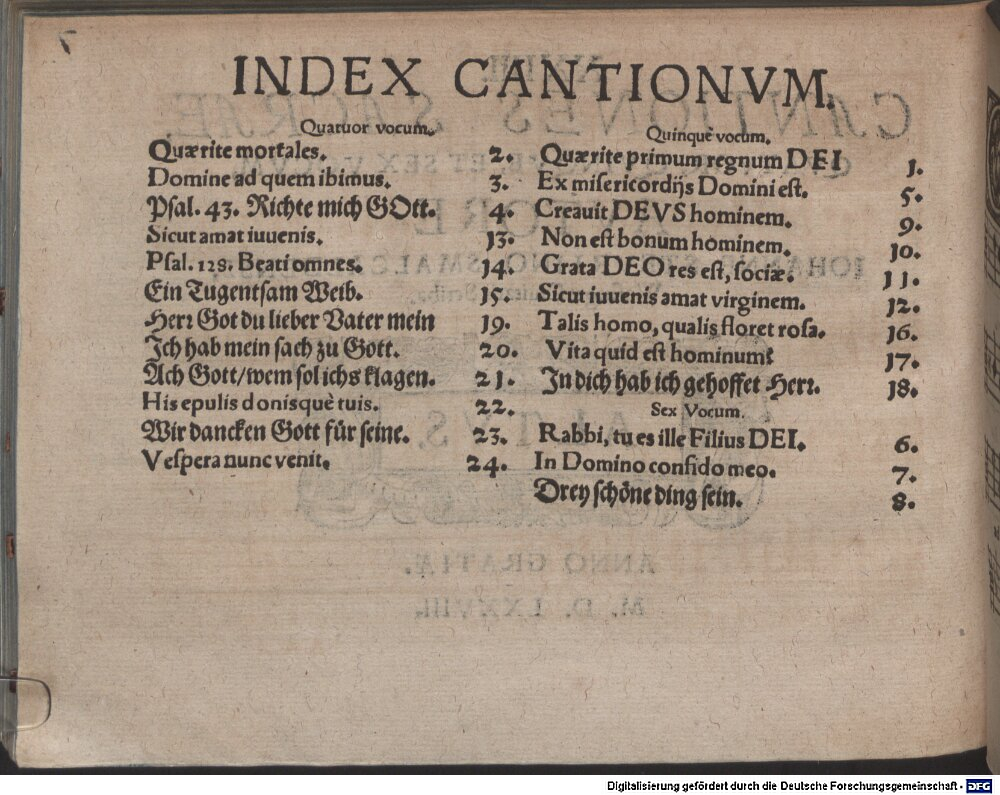 INDEX CANTIONVM.
Quatuor vocum.
Quærite mortales. 2.
Domine ad quem ibimus. 3.
Psal. 43. Richte mich GOtt. 4.
Sicut amat iuuenis. 13.
Psal. 128. Beati omnes. 14.
Ein Tugentsam Weib. 15.
Herr Got du lieber Vater mein 19.
Ich hab mein sach zu Gott. 20.
Ach Gott/wem sol ichs klagen. 21.
His epulis donisquè tuis. 22.
Wir dancken Gott für seine. 23.
Vespera nunc venit. 24.
Quinquè vocum.
Quærite primum regnum DEI 1.
Ex misericordijs Domini est. 5.
Creavit DEVS hominem. 9.
Non est bonum hominem. 10.
Grata DEO res est, sociæ. 11.
Sicut iuuenis amat virginem. 12.
Talis homo, qualis floret rosa. 16.
Vita quid est hominum? 17.
In dich hab ich gehoffet Herr. 18.
Sex Vocum.
Rabbi, tu es ille Filius DEI. 6.
In Domino confido meo. 7.
Drey schöne ding sein. 8.
Digitalisierung gefördert durch die Deutsche Forschungsgemeinschaft - DFG